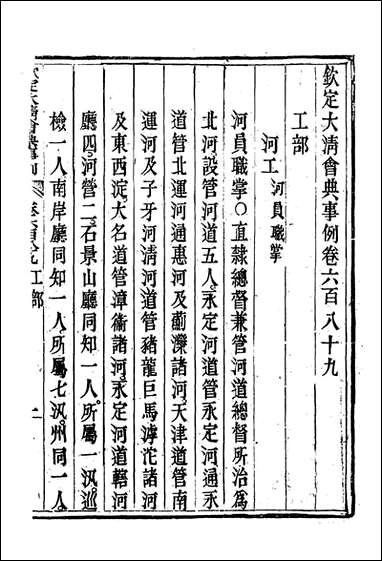 欽定大清會典事例卷六百八十九
工部
河工河員職掌
河員職掌〇直隸總督兼管河道總督所治爲
北河設管河道五人永定河道管永定河通永
道管北運河通惠河及薊灤諸河天津道管南
運河及子牙河清河道管豬龍巨馬滹沱諸河
及東西淀大名道管漳衞諸河永定河道轄河
廳四河營二石景山廳同知一人所屬一汛巡
檢一人南岸廳同知一人所屬七汛州同一人
工部